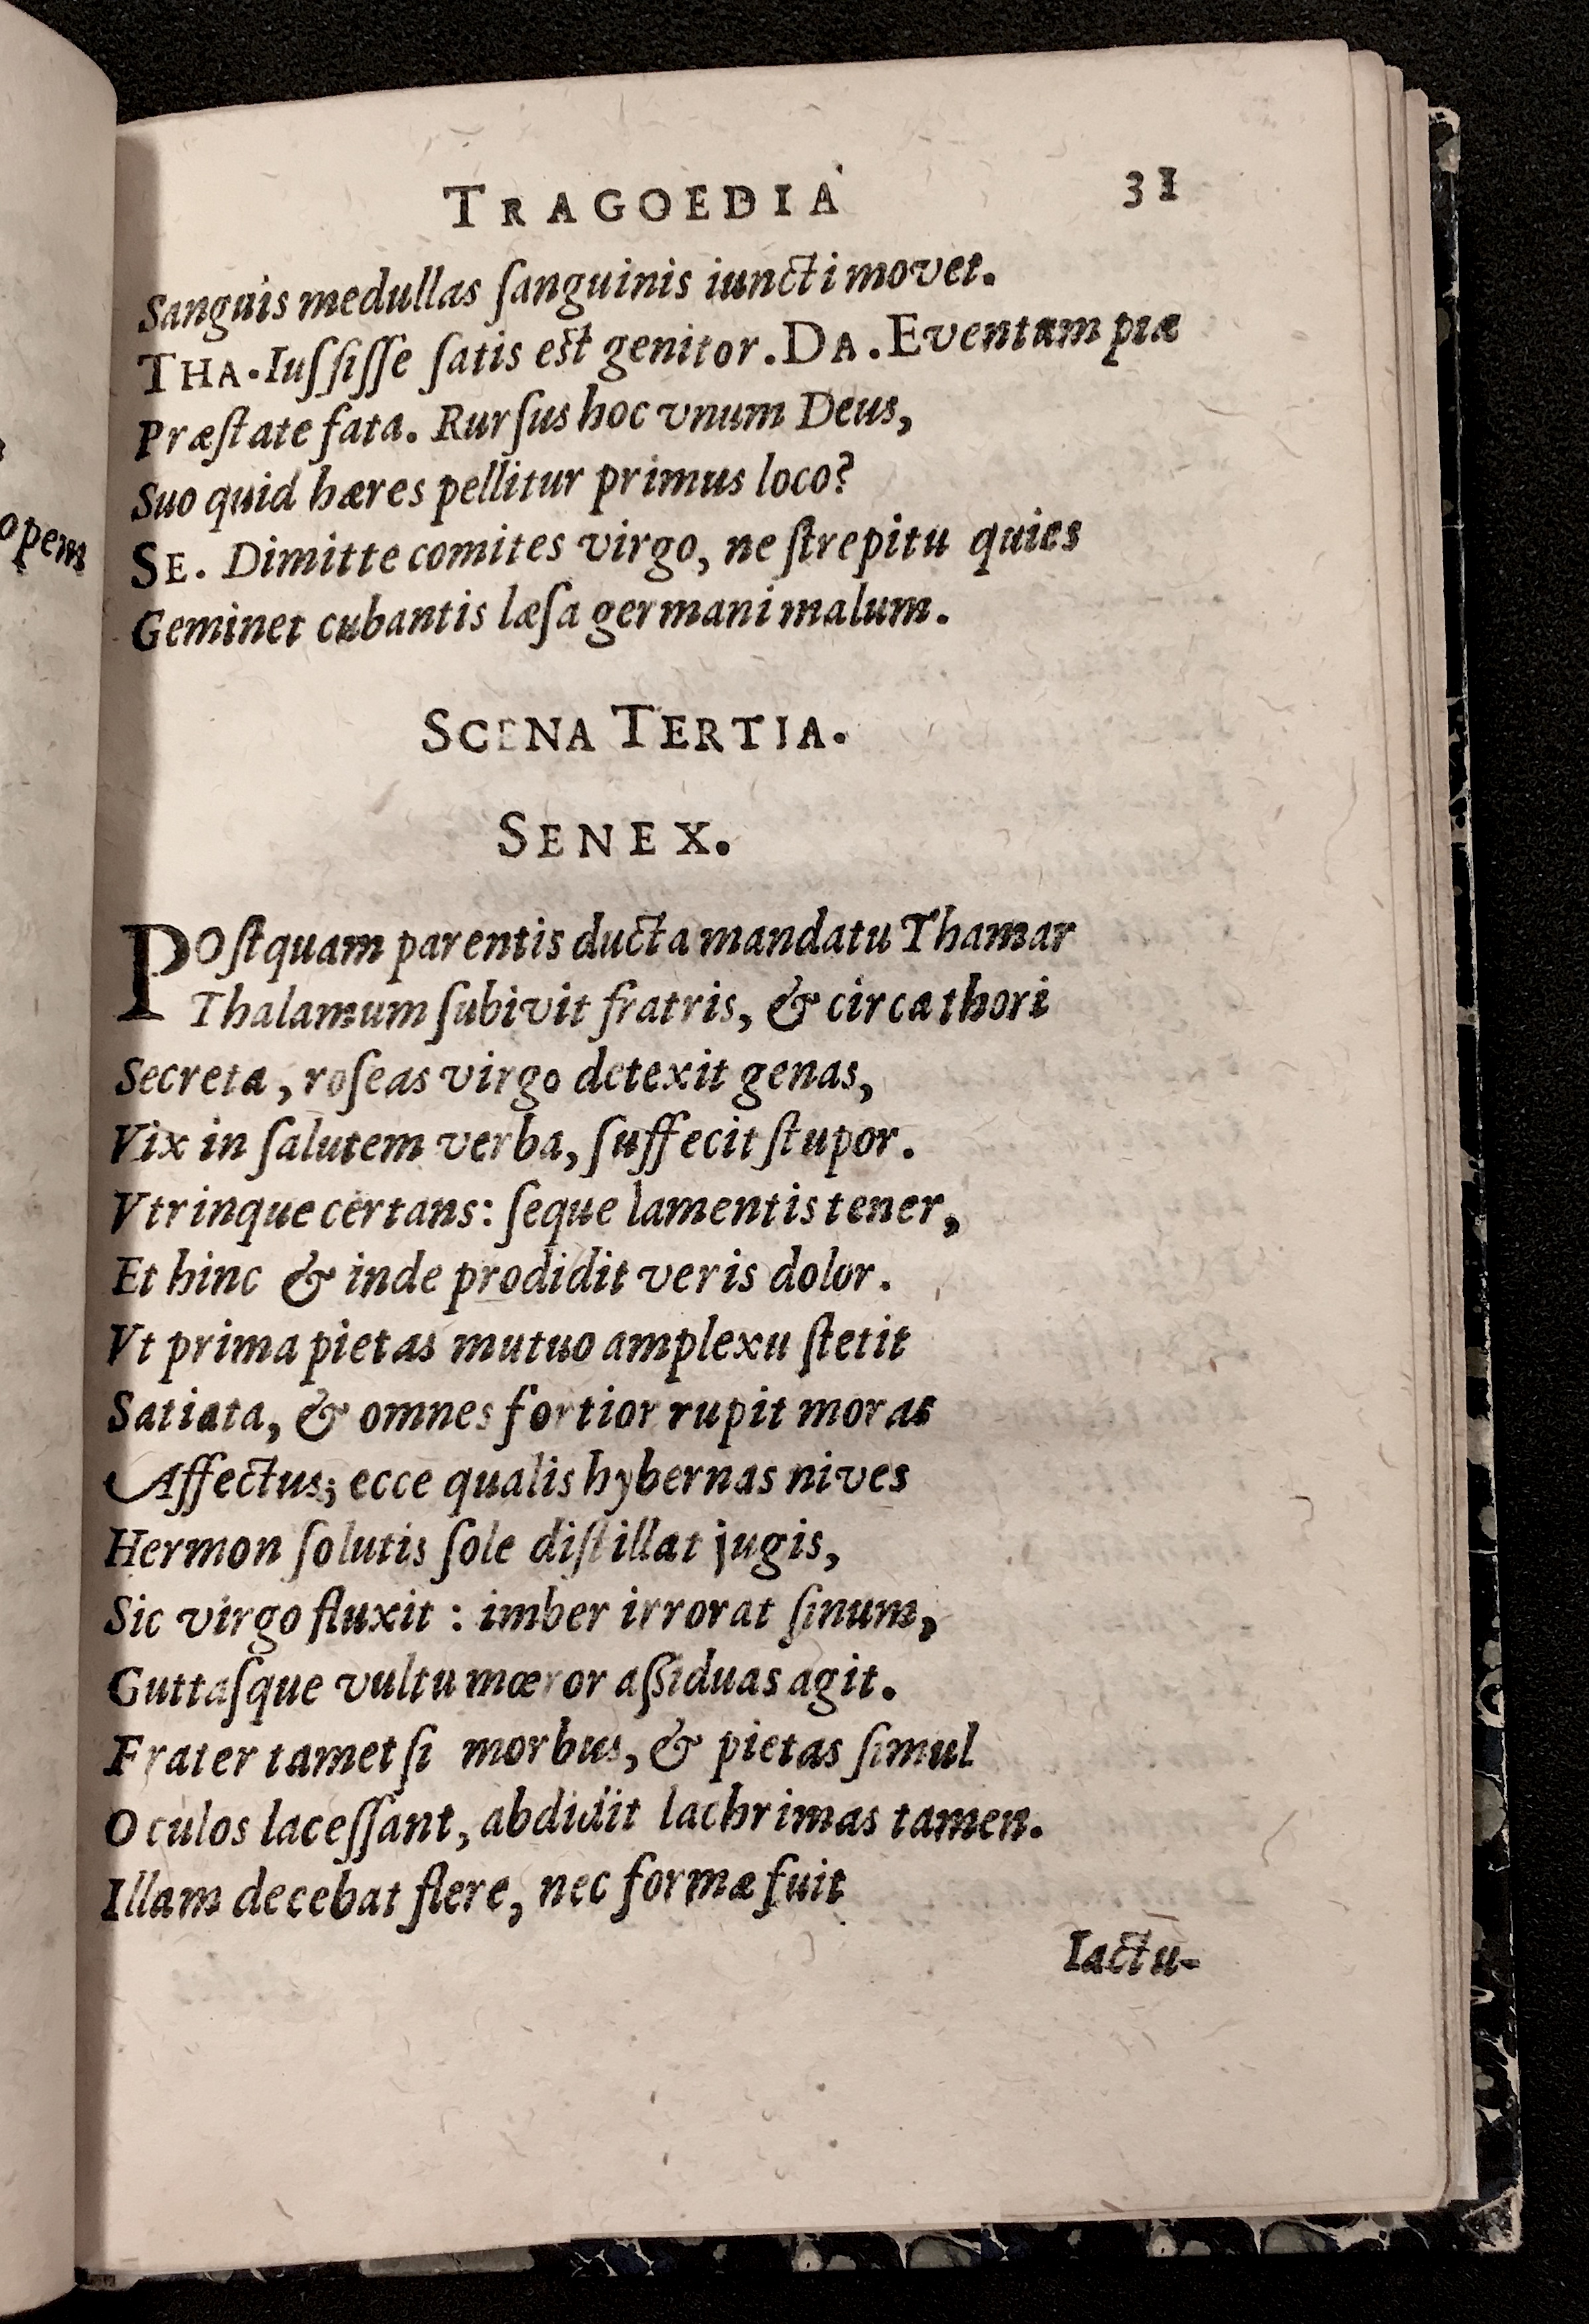 TRAGOEDIA 31
Sanguis medullas ſanguinis iuncti movet.
THA. Iuſſiſſe ſatis est genitor. DA. Eventam piæ
Præſtate fata. Rurſus hoc vnum Deus,
Suo quid hæres pellitur primus loco?
SE. Dimitte comites virgo, ne ſtrepitu quies
Geminet cubantis læſa germani malum.
SCENA TERTIA.
SENEX.
POſtquam parentis ducta mandatu Thamar
Thalamum ſubivit fratris, & circa thori
Secreta, roſeas virgo detexit genas,
Vix in ſalutem verba, ſuffecit ſtupor.
Vtrinque certans: ſeque lamentis tener,
Et hinc & inde prodidit veris dolor.
Vt prima pietas mutuo amplexu ſtetit
Satiata, & omnes fortior rupit moras
Affectus; ecce qualis hybernas nives
Hermon ſolutis ſole diſtillat jugis,
Sic virgo fluxit : imber irrorat ſinum,
Guttaſque vultu mœror aſſiduas agit.
Frater tametſi morbus, & pietas ſimul
Oculos laceſſant, abdidit lachrimas tamen.
Illam decebat flere, nec formæ fuit
Iactu-
opem